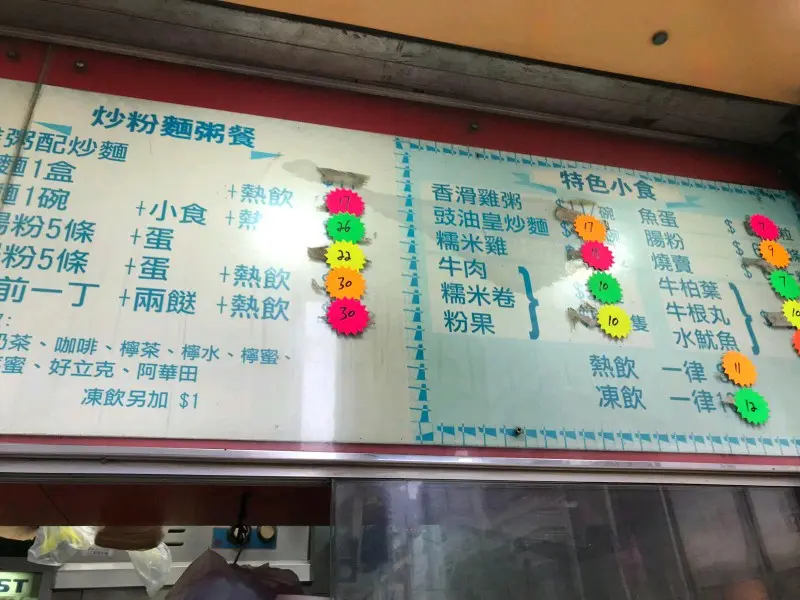 炒粉麵粥餐
粥配炒麵
麵1盒 +熱飲
麵1碗 +小食 +熱 17
腸粉5條 +蛋 26
粉5條 +蛋 +熱飲 22
前一丁 +兩餸 +熱飲 30
30
奶茶、咖啡、檸茶、檸水、檸蜜、
蜜、好立克、阿華田
凍飲另加 $1
特色小食
香滑雞粥 碗
豉油皇炒麵 17
糯米雞
牛肉 10
糯米卷
粉果 10 隻
魚蛋 $ 7 粒
腸粉 $ 9
燒賣 $ 7
牛柏葉
牛根丸 10
水魷魚
熱飲 一律 11
凍飲 一律 12
ST